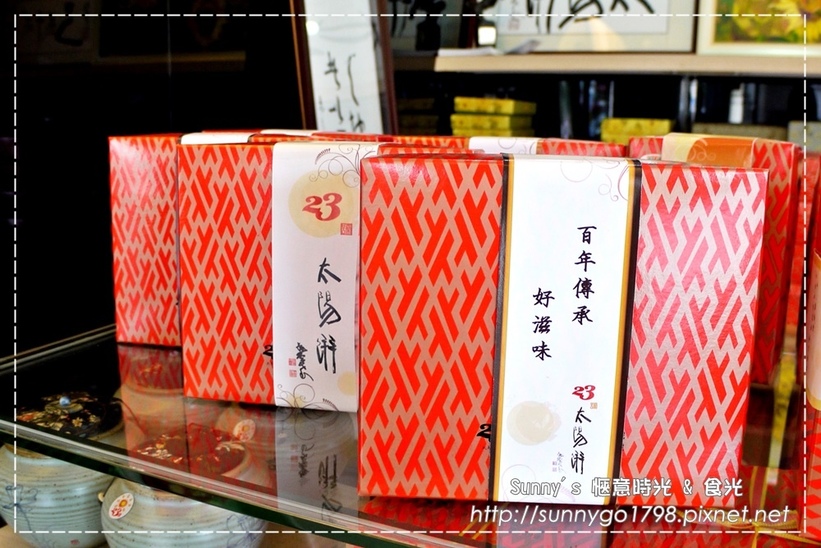 23
太陽餅
百年傳承
好滋味
23
太陽餅
Sunny's 愜意時光 & 食光
http://sunnygo1798.pixnet.net